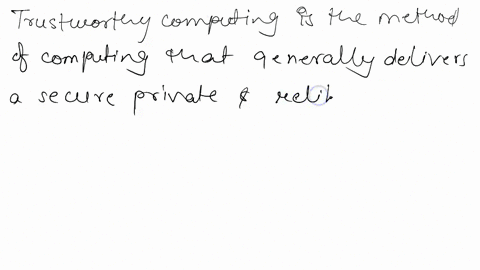 Trustworthy computing is the method
of computing that generally delivers
a secure private & relib